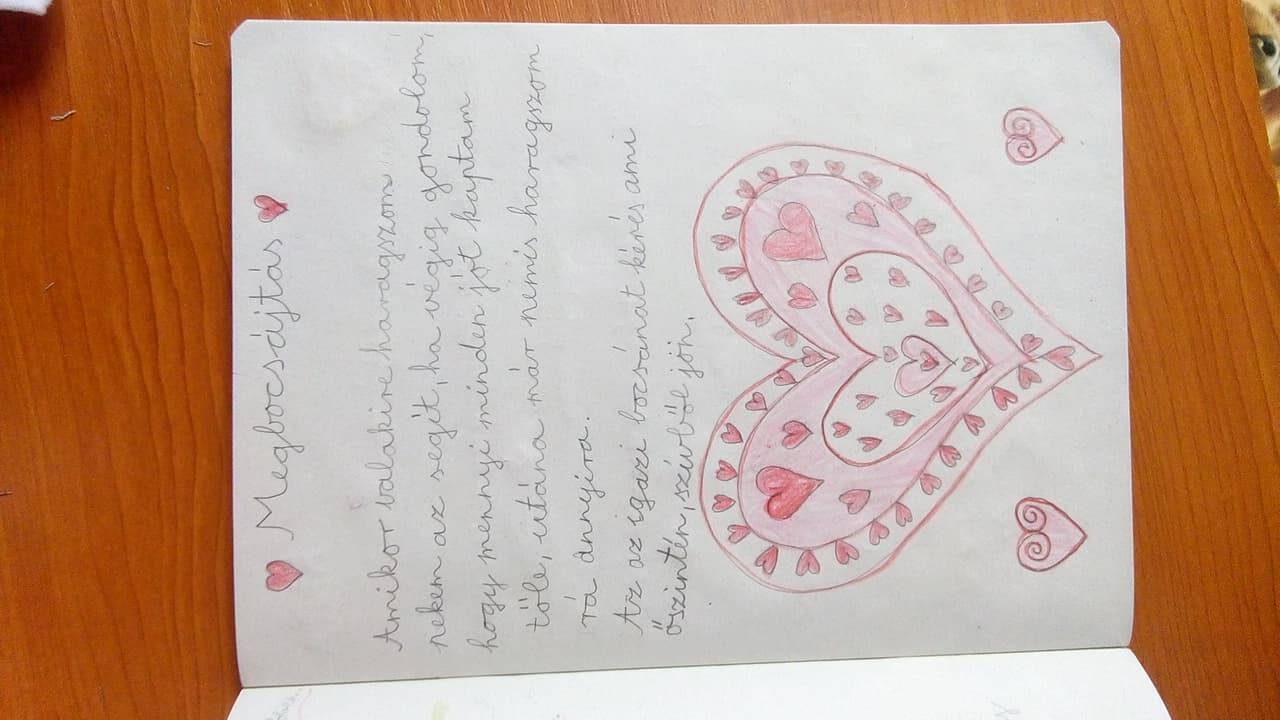 Megbocsájtás
Amikor valakire haragszom
nekem az segít, ha végig gondolom,
hogy mennyi minden jót kaptam
tőle, utána már nem is haragszom
rá annyira.
Az az igazi bocsánat kérés ami
őszintén, szívből jön.